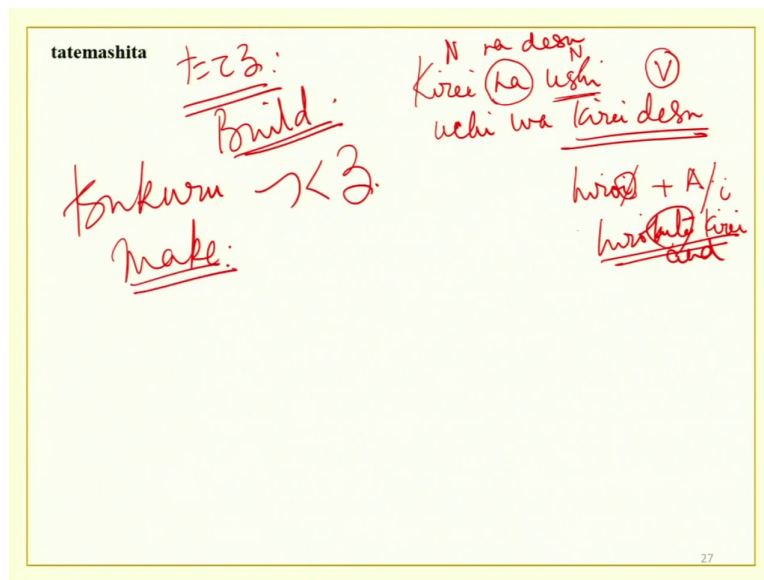 tatemashita
たてる:
Build.
tsukuru つくる.
Make:
N na desu N
Kirei na ushi V
uchi wa kirei desu
hiroi + A/i
hirokute kirei
and
27